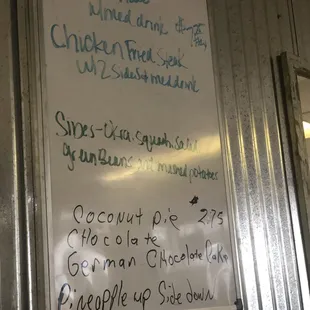 w/med drink
Chicken Fried Steak
w/2 Sides + med drink
Sides - Okra, Squash, Salad
green Beans, mashed potatoes
Coconut pie 2.75
CHocolate
German CHocolate Cake
Pineapple up Side down